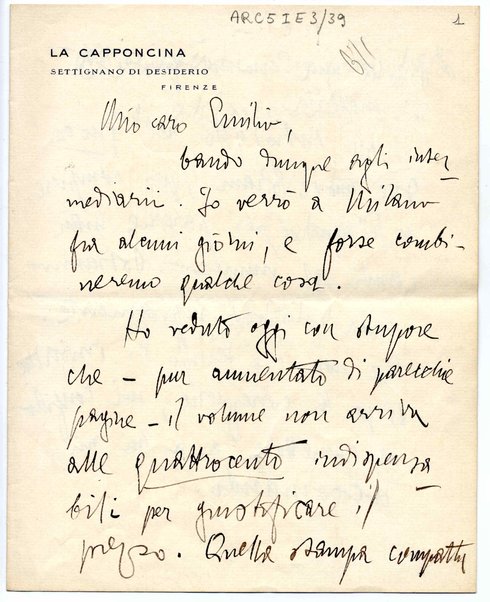 ARC5 I E 3/39
1
LA CAPPONCINA
SETTIGNANO DI DESIDERIO
FIRENZE
Mio caro Emilio,
bando dunque agli inter
mediarii. Io verrò a Milano
fra alcuni giorni, e forse combi-
neremo qualche cosa.
Ho veduto oggi con stupore
che – pur aumentato di parecchie
pagine – il volume non arriva
alle quattrocento indispensa
bili per giustificare il
prezzo. Quella stampa compatta